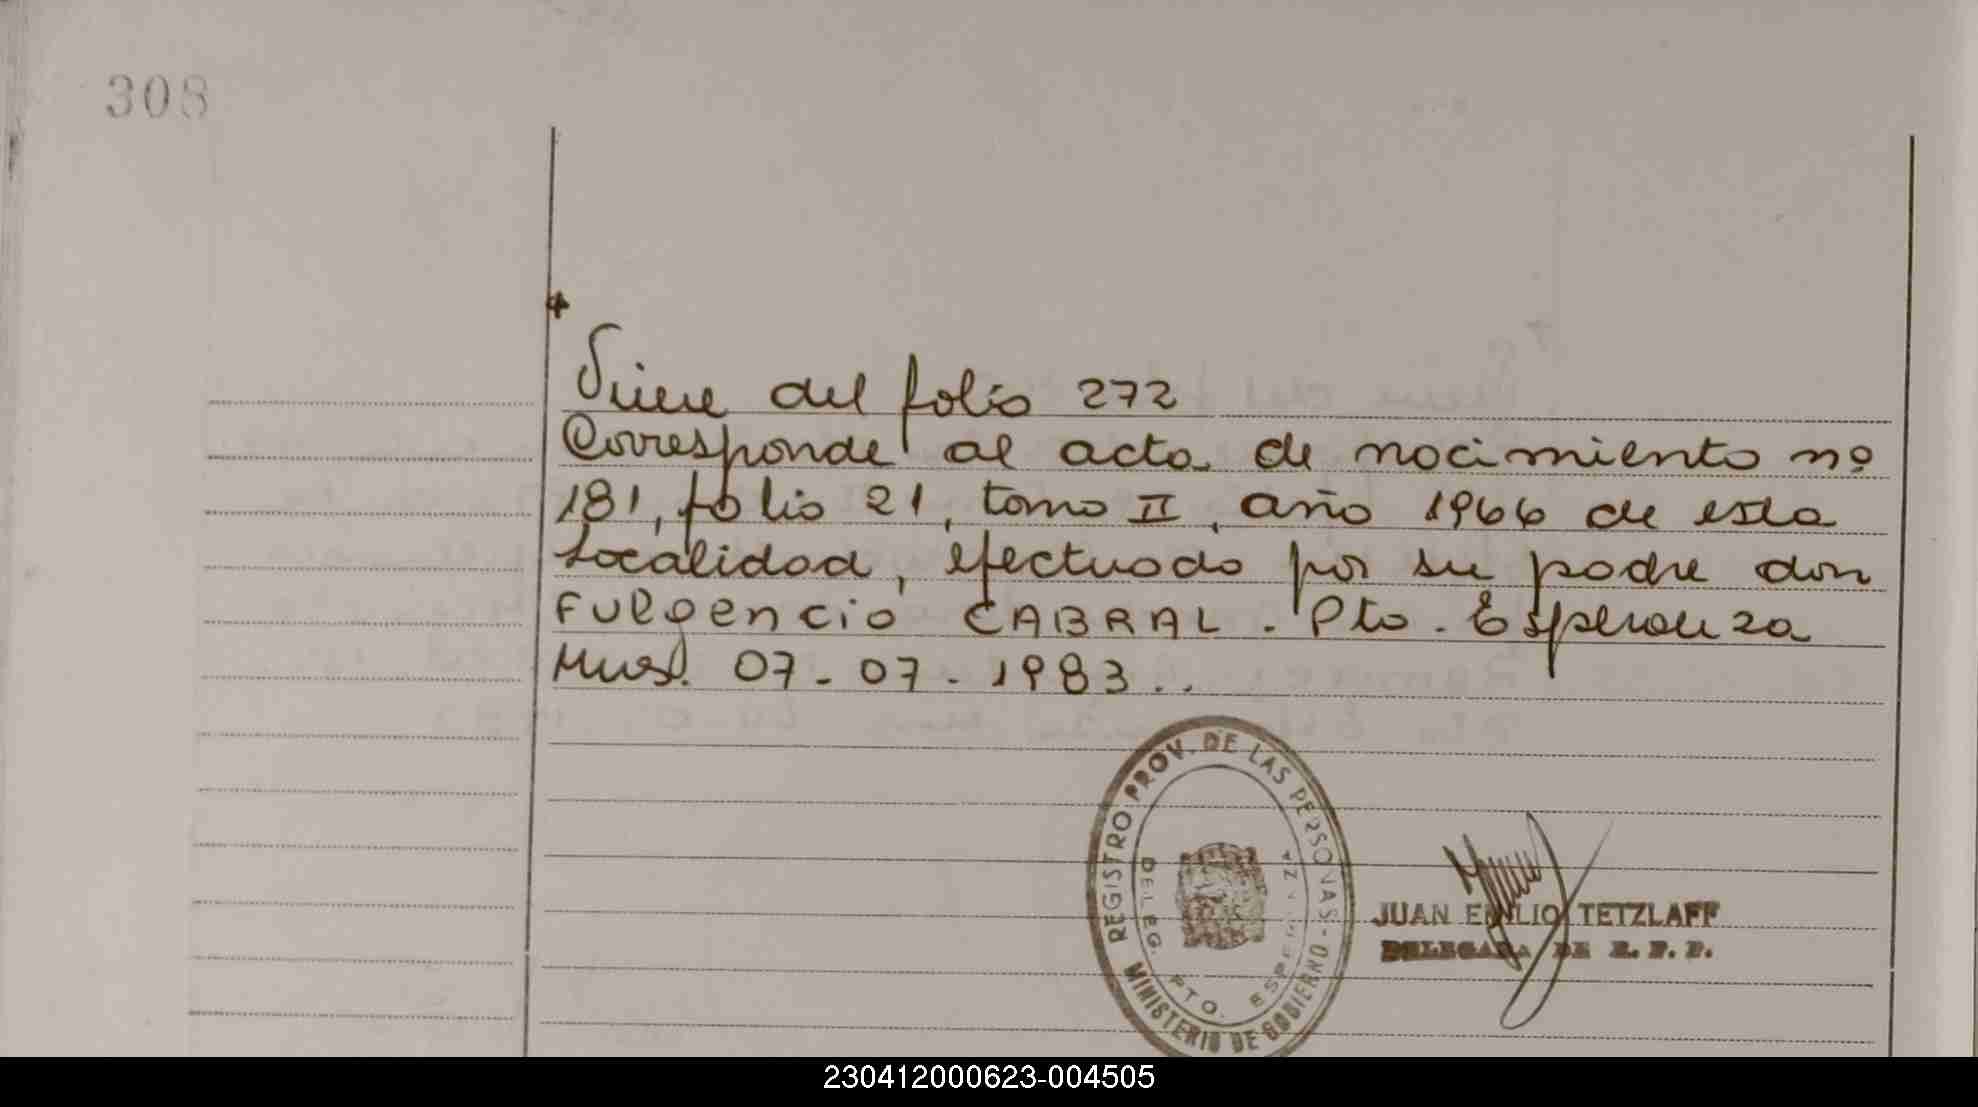 308
Viene del folio 272
Corresponde al acta de nacimiento nº
181, folio 21, tomo II, año 1966 de esta
Localidad, efectuado por su padre don
Fulgencio CABRAL. Pto. Esperanza
Mnes. 07-07-1983..
REGISTRO PROV. DE LAS PERSONAS - MINISTERIO DE GOBIERNO
DELEG. PTO. ESPERANZA
JUAN EMILIO TETZLAFF
DELEGADA DE R. P. P.
230412000623-004505